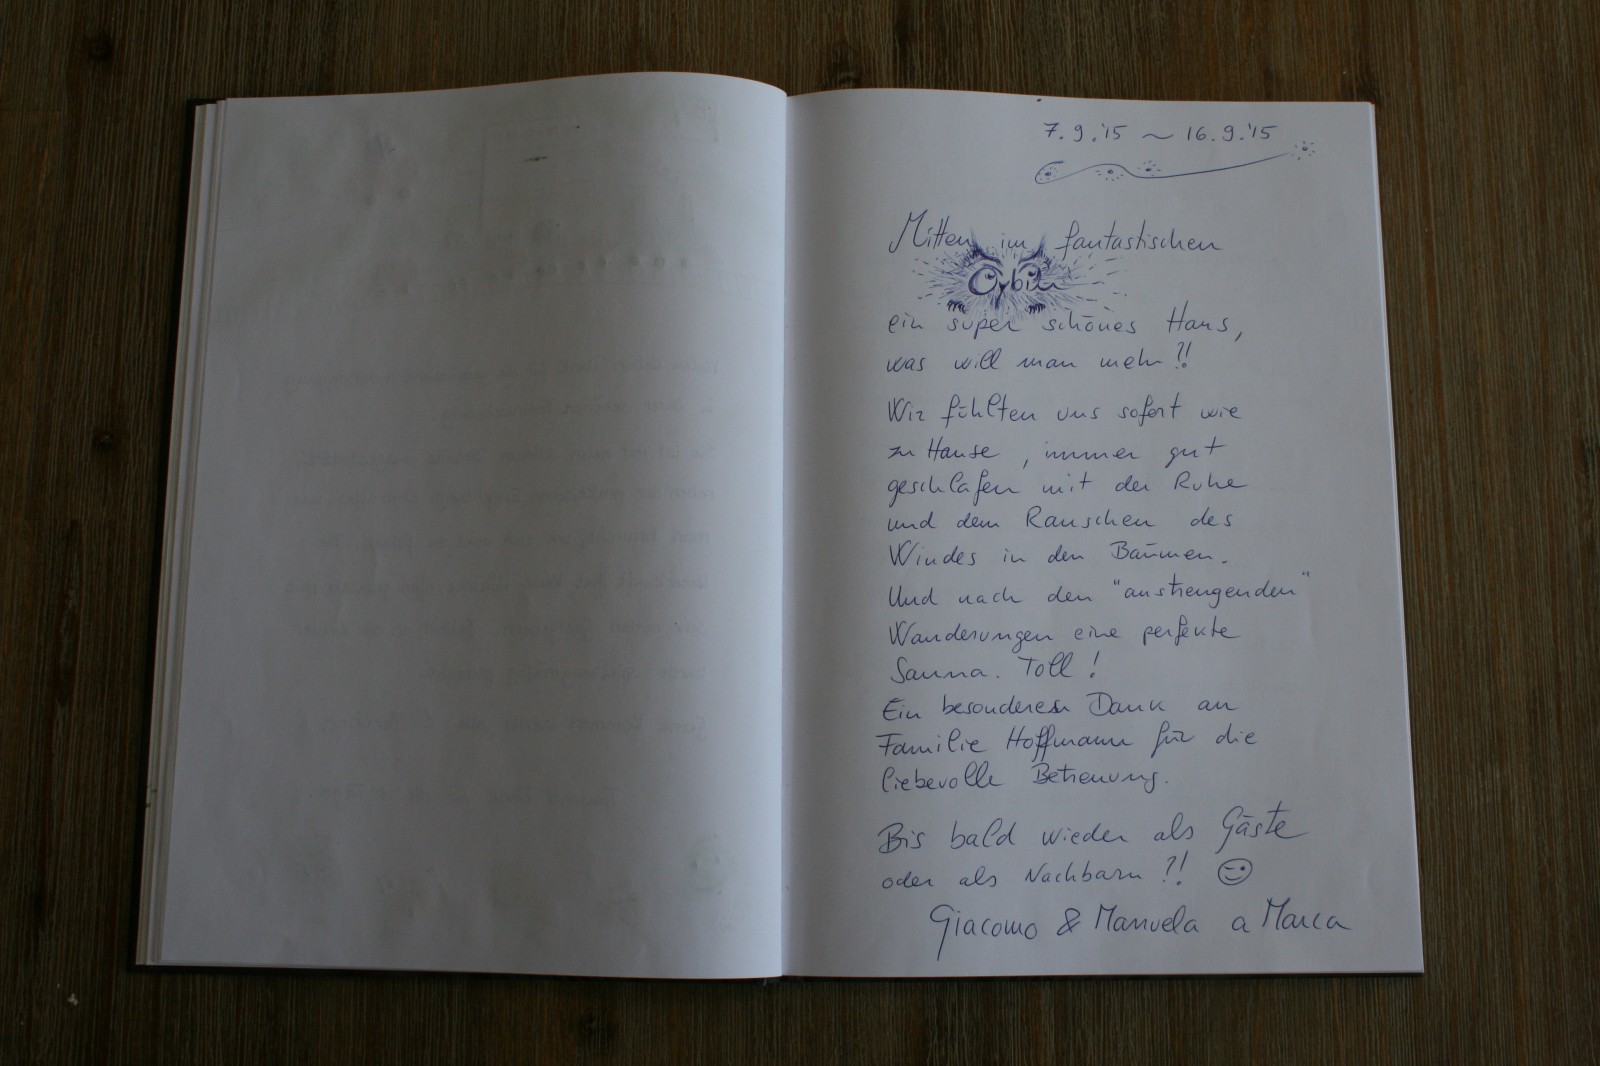 7.9.'15 ~ 16.9.'15
Mitten im fantastischen
Oybin
ein super schönes Haus,
was will man mehr?!
Wir fühlten uns sofort wie
zu Hause, immer gut
geschlafen mit der Ruhe
und dem Rauschen des
Windes in den Bäumen.
Und nach den "anstrengenden"
Wanderungen eine perfekte
Sauna. Toll!
Ein besonderen Dank an
Familie Hoffmann für die
liebevolle Betreuung.
Bis bald wieder als Gäste
oder als Nachbarn?! 😉
Giacomo & Manuela a Marca